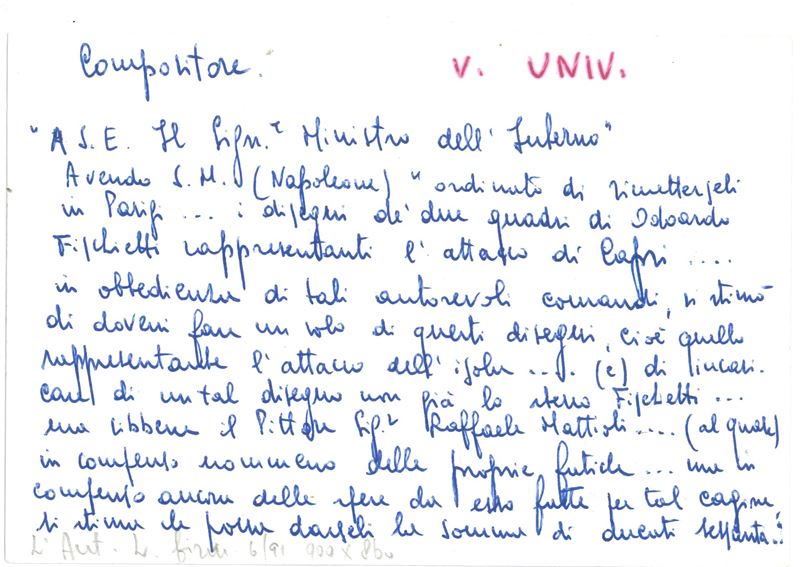 Compositore. V. UNIV.
"A S. E. Il Sign.r Ministro dell' Interno"
Avendo S. M. (Napoleone) "ordinato di rimettergli
in Parigi ... i disegni de' due quadri di Odoardo
Fischetti rappresentanti l' attacco di Capri ....
in obbedienza di tali autorevoli comandi, si stimò
di doversi fare un solo di questi disegni, cioè quello
rappresentante l' attacco dell' isola .... (e) di incari-
care di un tal disegno non già lo stesso Fischetti ...
ma sibbene il Pittore Sig.r Raffaele Mattioli .... (al quale)
in compenso nommeno delle proprie fatiche ... ma in
compenso ancora delle spese da esso fatte per tal cagione,
si stima che possa darseli la somma di ducati sessanta."
L. 6/91 900 x 860